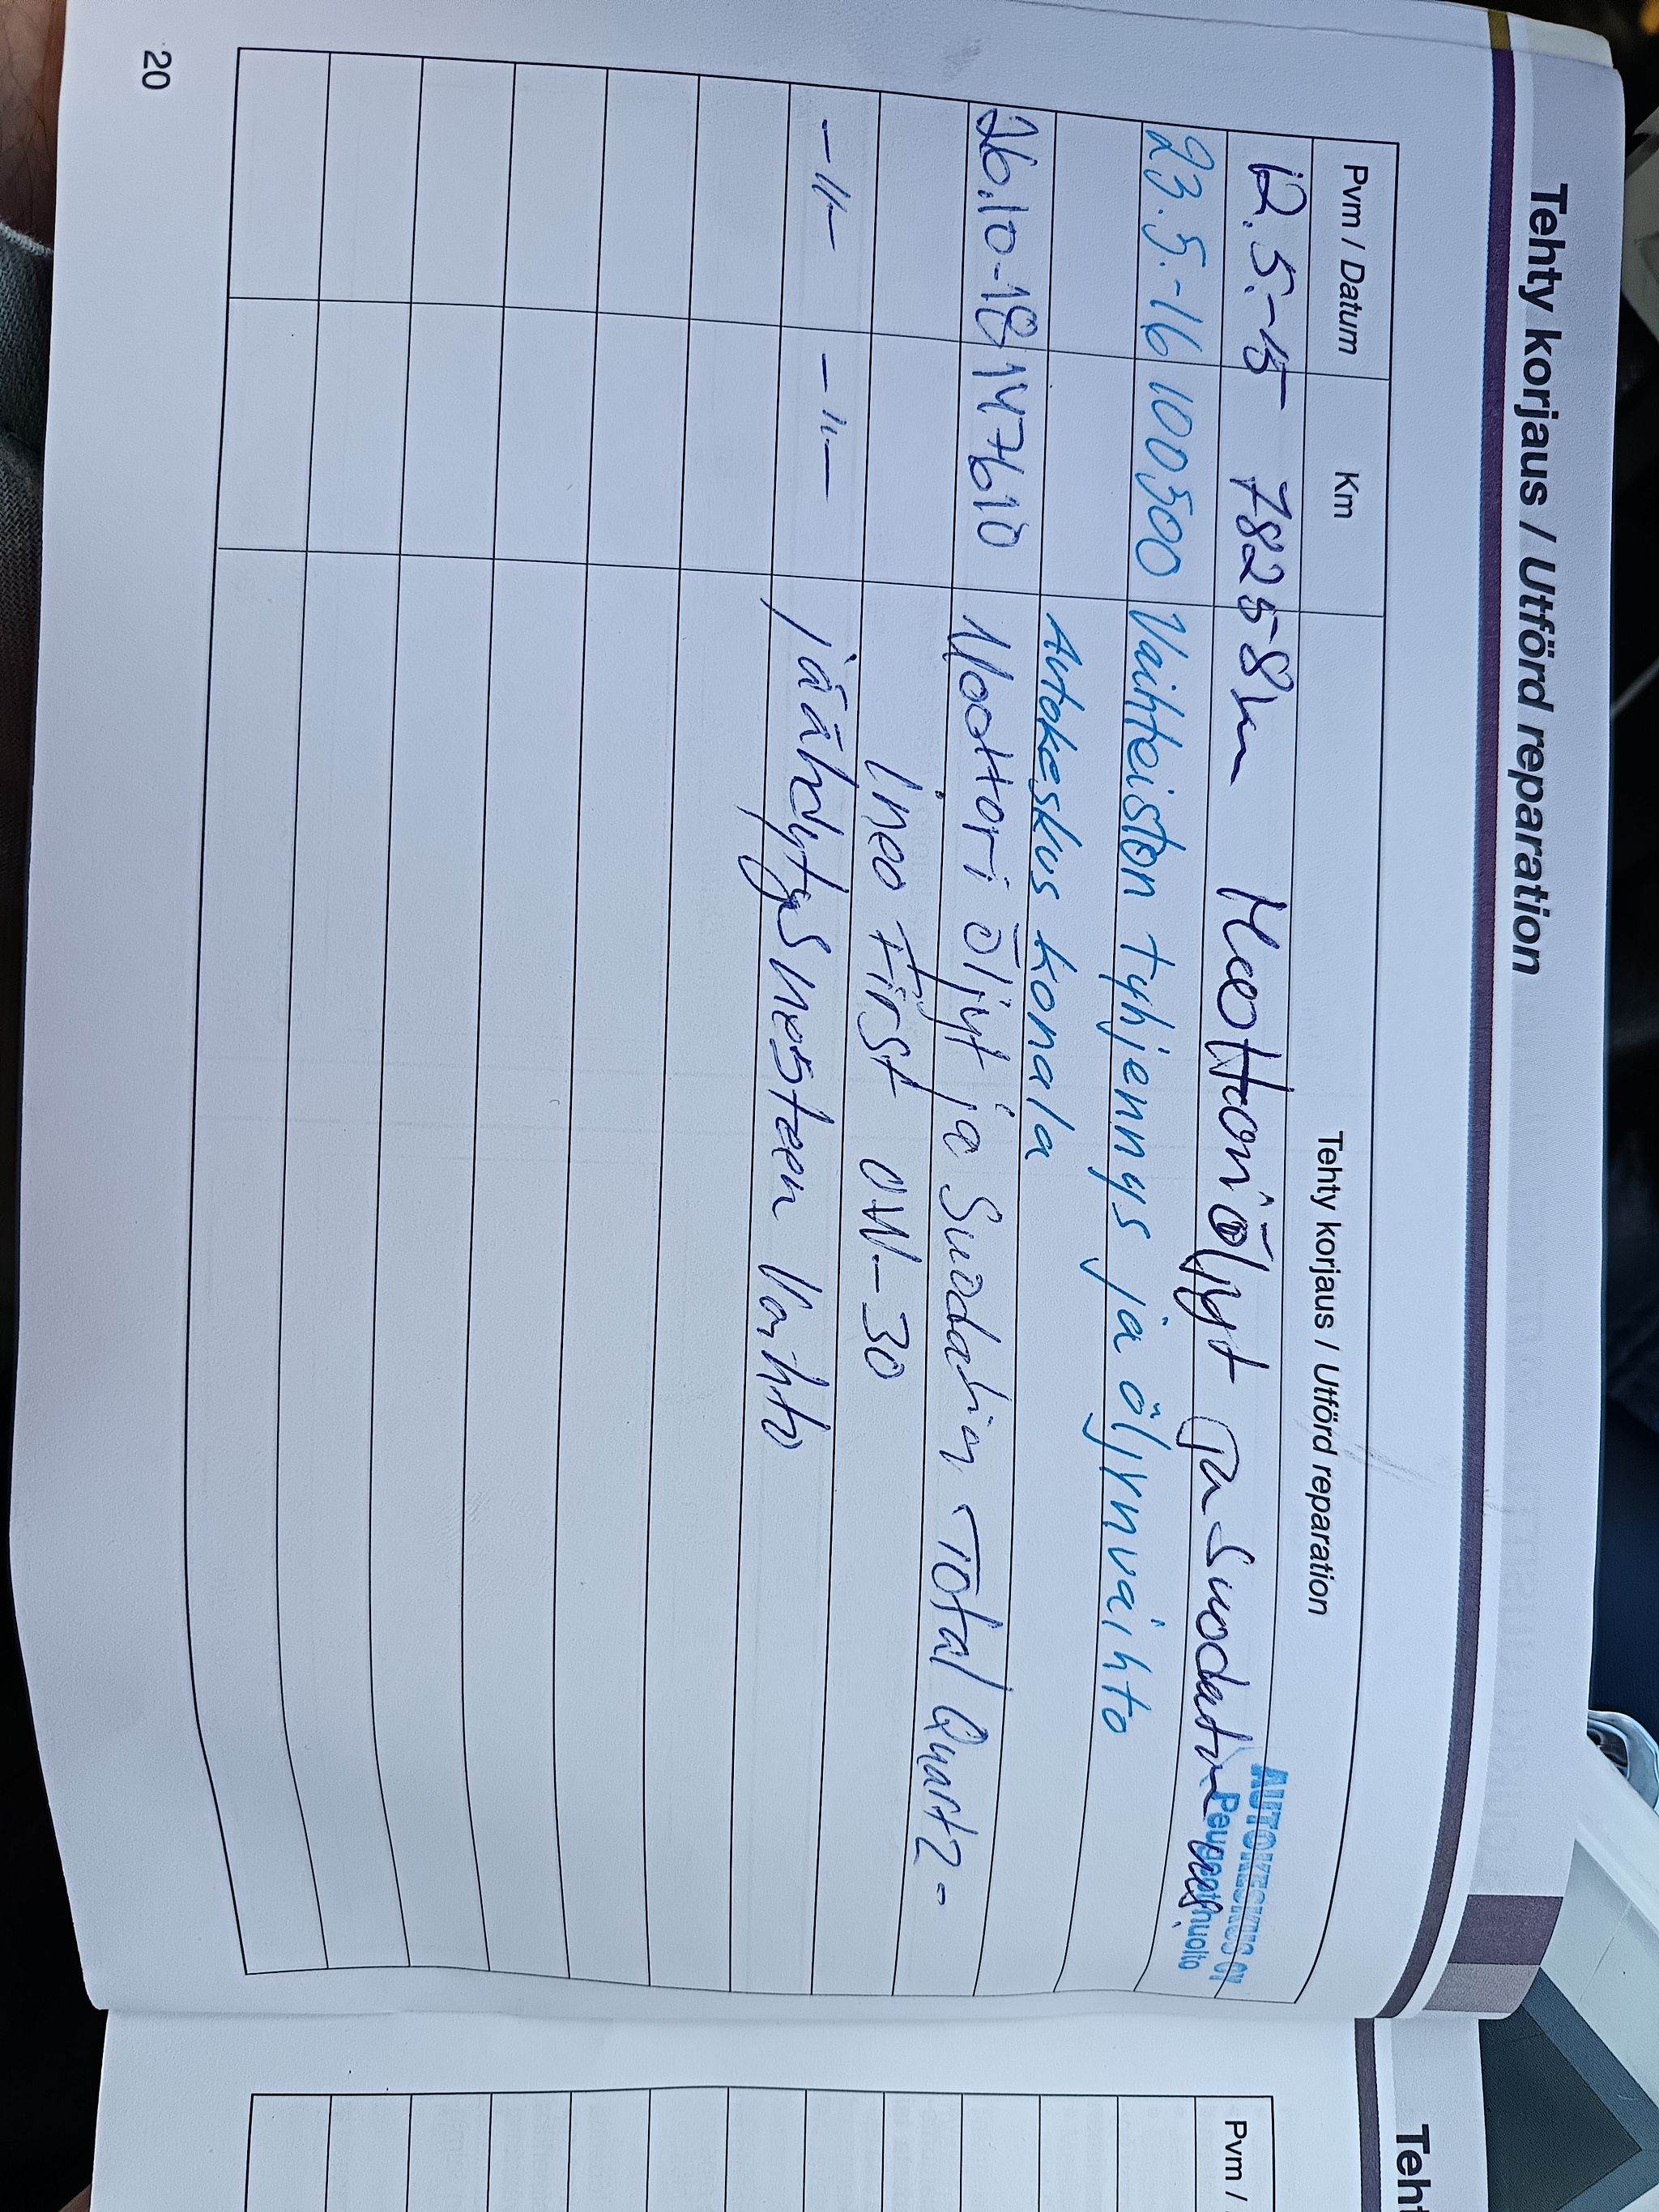 Tehty korjaus / Utförd reparation
Pvm / Datum Km Tehty korjaus / Utförd reparation
12.5.-15 78258km Moottoriöljyt ja suodatin
AUTOKESKUS OY
Peugeot huolto
23.5.-16 100500 Vaihteiston tyhjennys ja öljynvaihto
Autokeskus konala
26.10-18 147610 Moottori öljyt ja Suodatin Total Quartz-
ineo First 0W-30
-"- -"- jäähdytysnesteen Vaihto
20
Teht
Pvm /